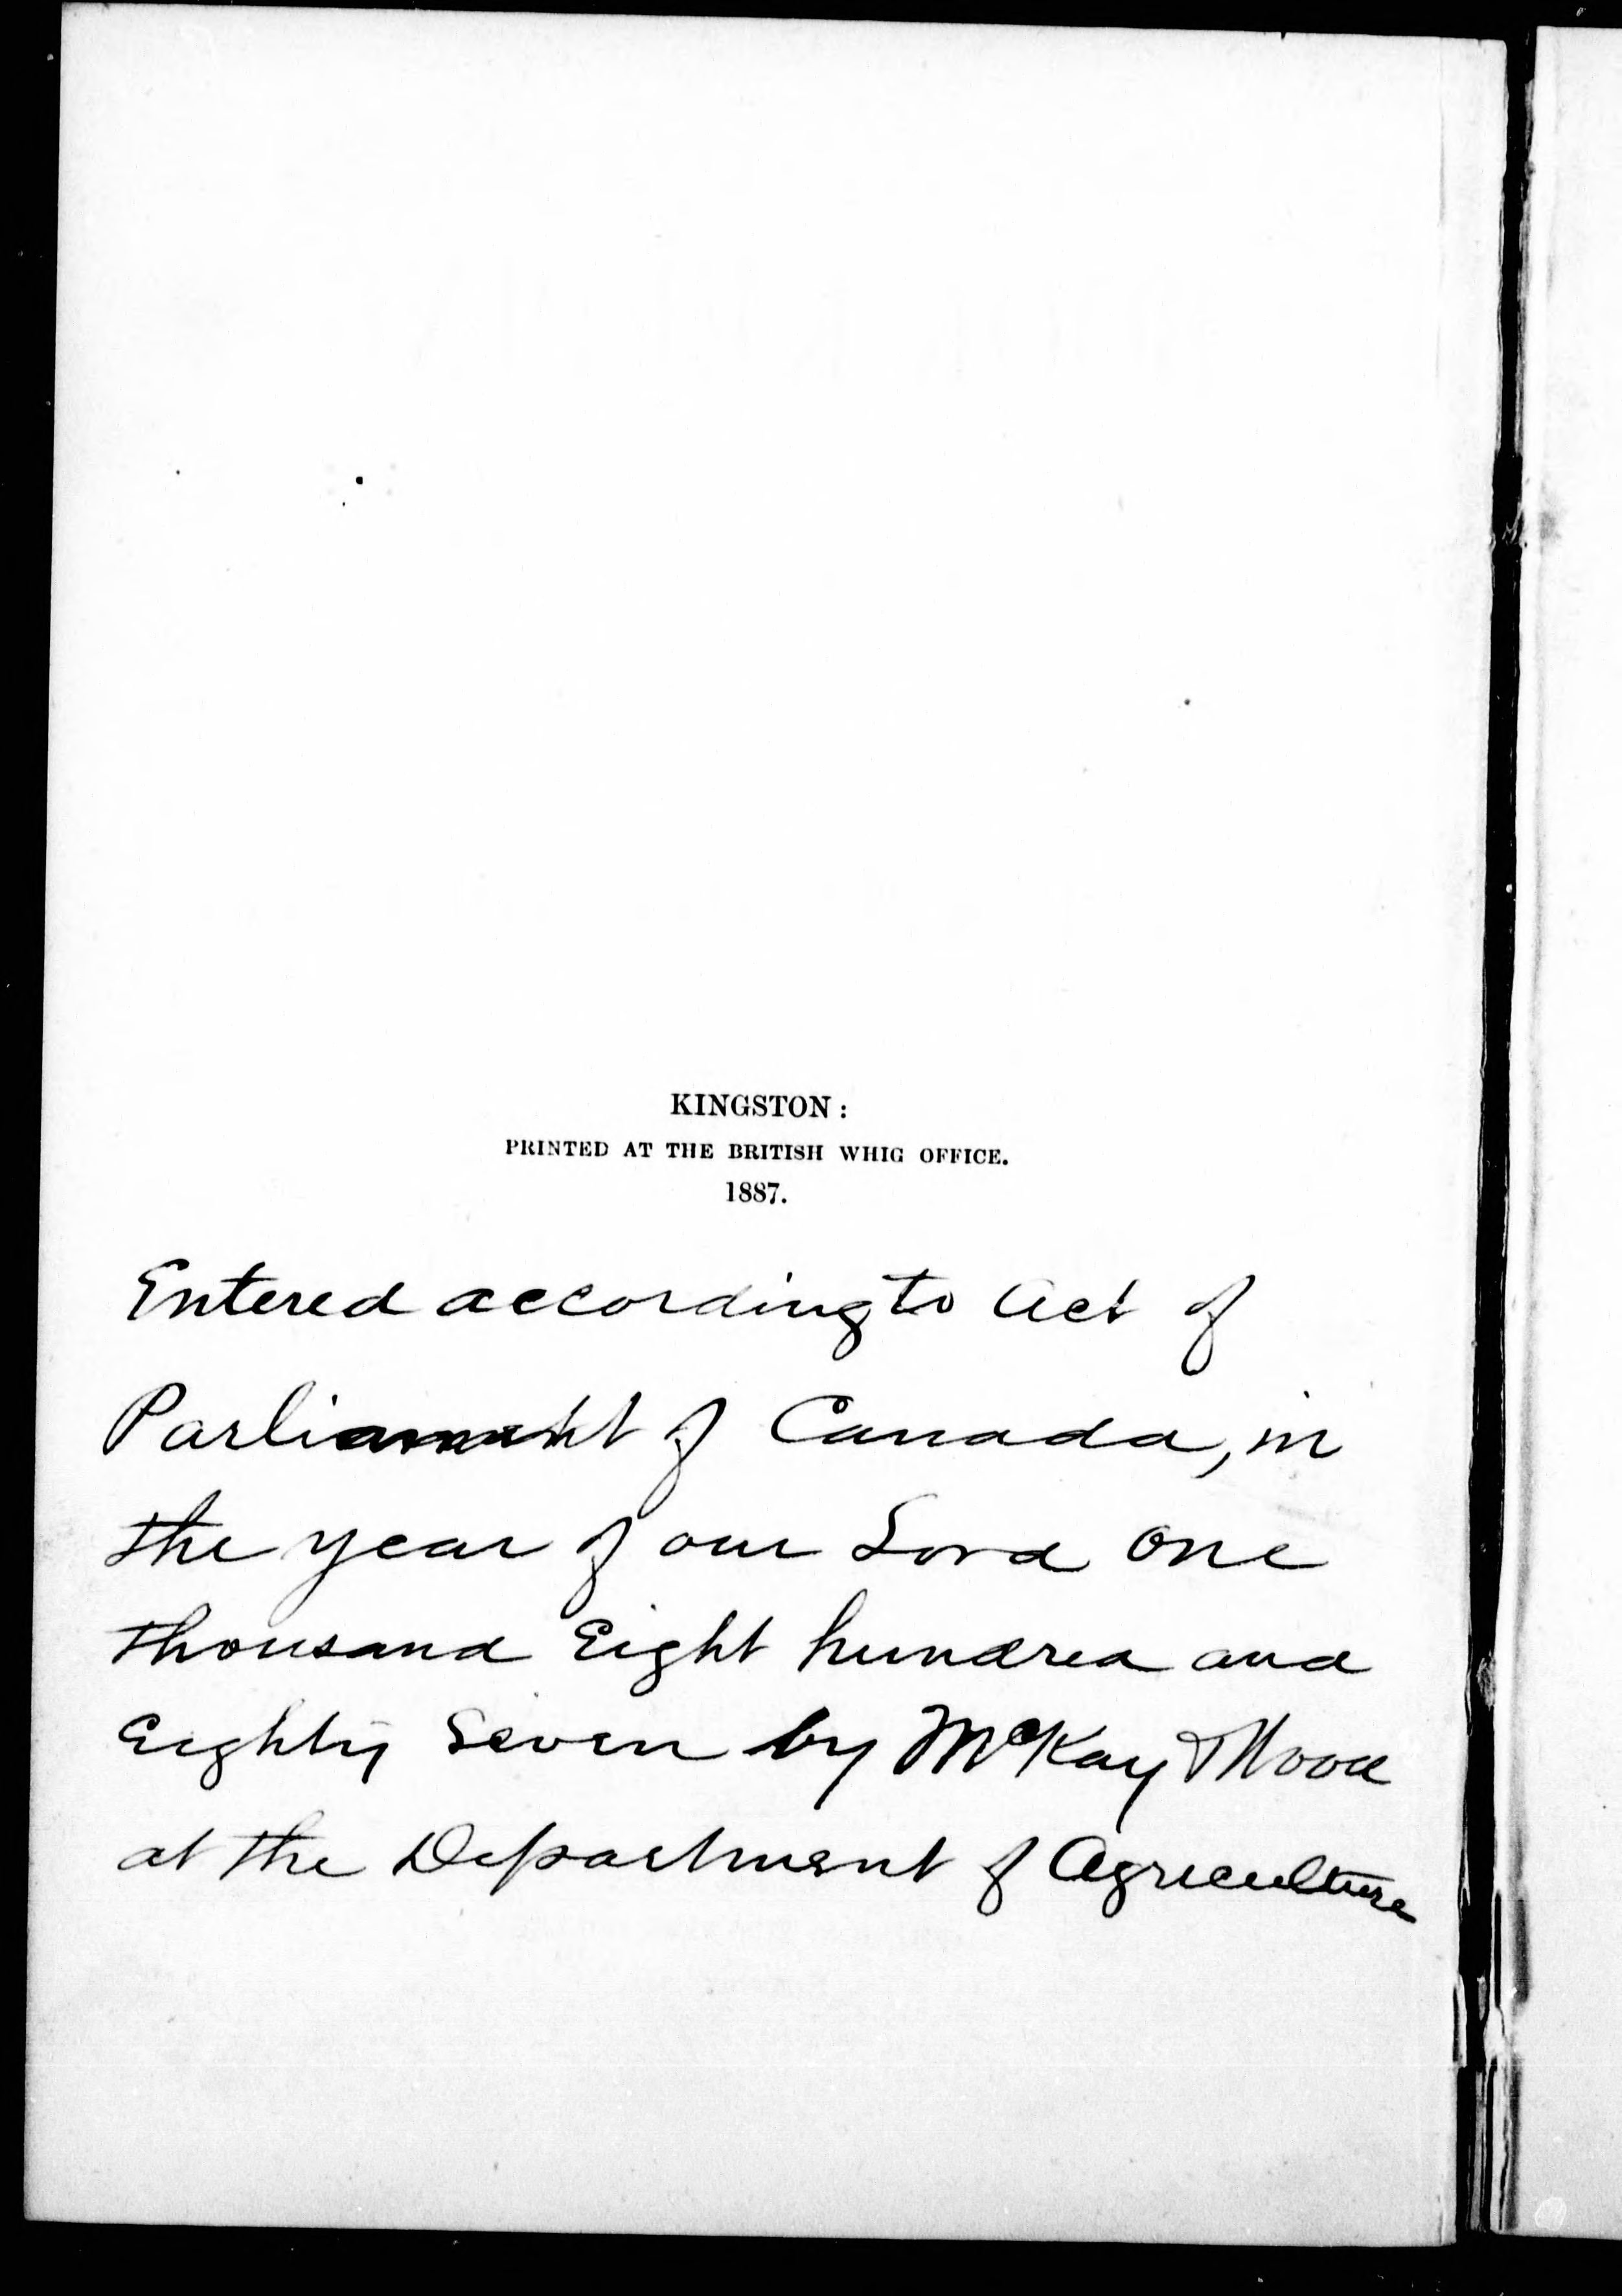 KINGSTON:
PRINTED AT THE BRITISH WHIG OFFICE.
1887.
Entered according to Act of
Parliament of Canada, in
the year of our Lord One
thousand Eight hundred and
Eighty Seven by McKay & Wood
at the Department of Agriculture